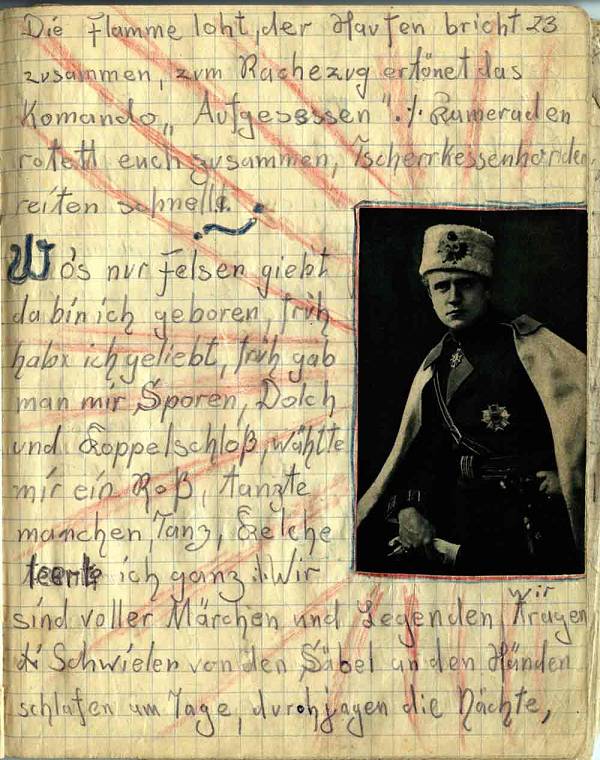 Die Flamme loht, der Haufen bricht 23
zusammen, zum Rachezug ertönet das
Komando „ Aufgesessen ". ⁒ Kameraden
rotett euch zusammen, Tscherrkessenhorden,
reiten schnell!
Wo's nur Felsen giebt
da bin ich geboren, früh
habx ich geliebt, früh gab
man mir Sporen, Dolch
und Koppelschloß, wählte
mir ein Roß, tanzte
manchen Tanz, Kelche
leerte ich ganz :|: Wir
sind voller Märchen und Legenden, wir tragen
d' Schwielen von den Säbel an den Händen
schlafen am Tage, durchjagen die Nächte,